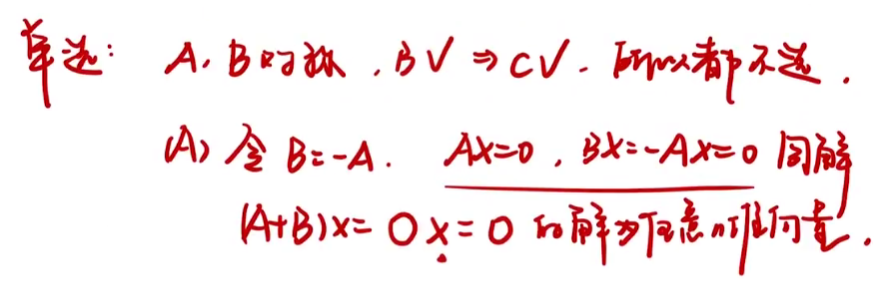 单选: A, B 对称, B√ ⇒ C√. 所以都不选.
(A) 令 B=-A. AX=0, BX=-AX=0 同解
(A+B)X= OX=0 的解为任意n维向量.